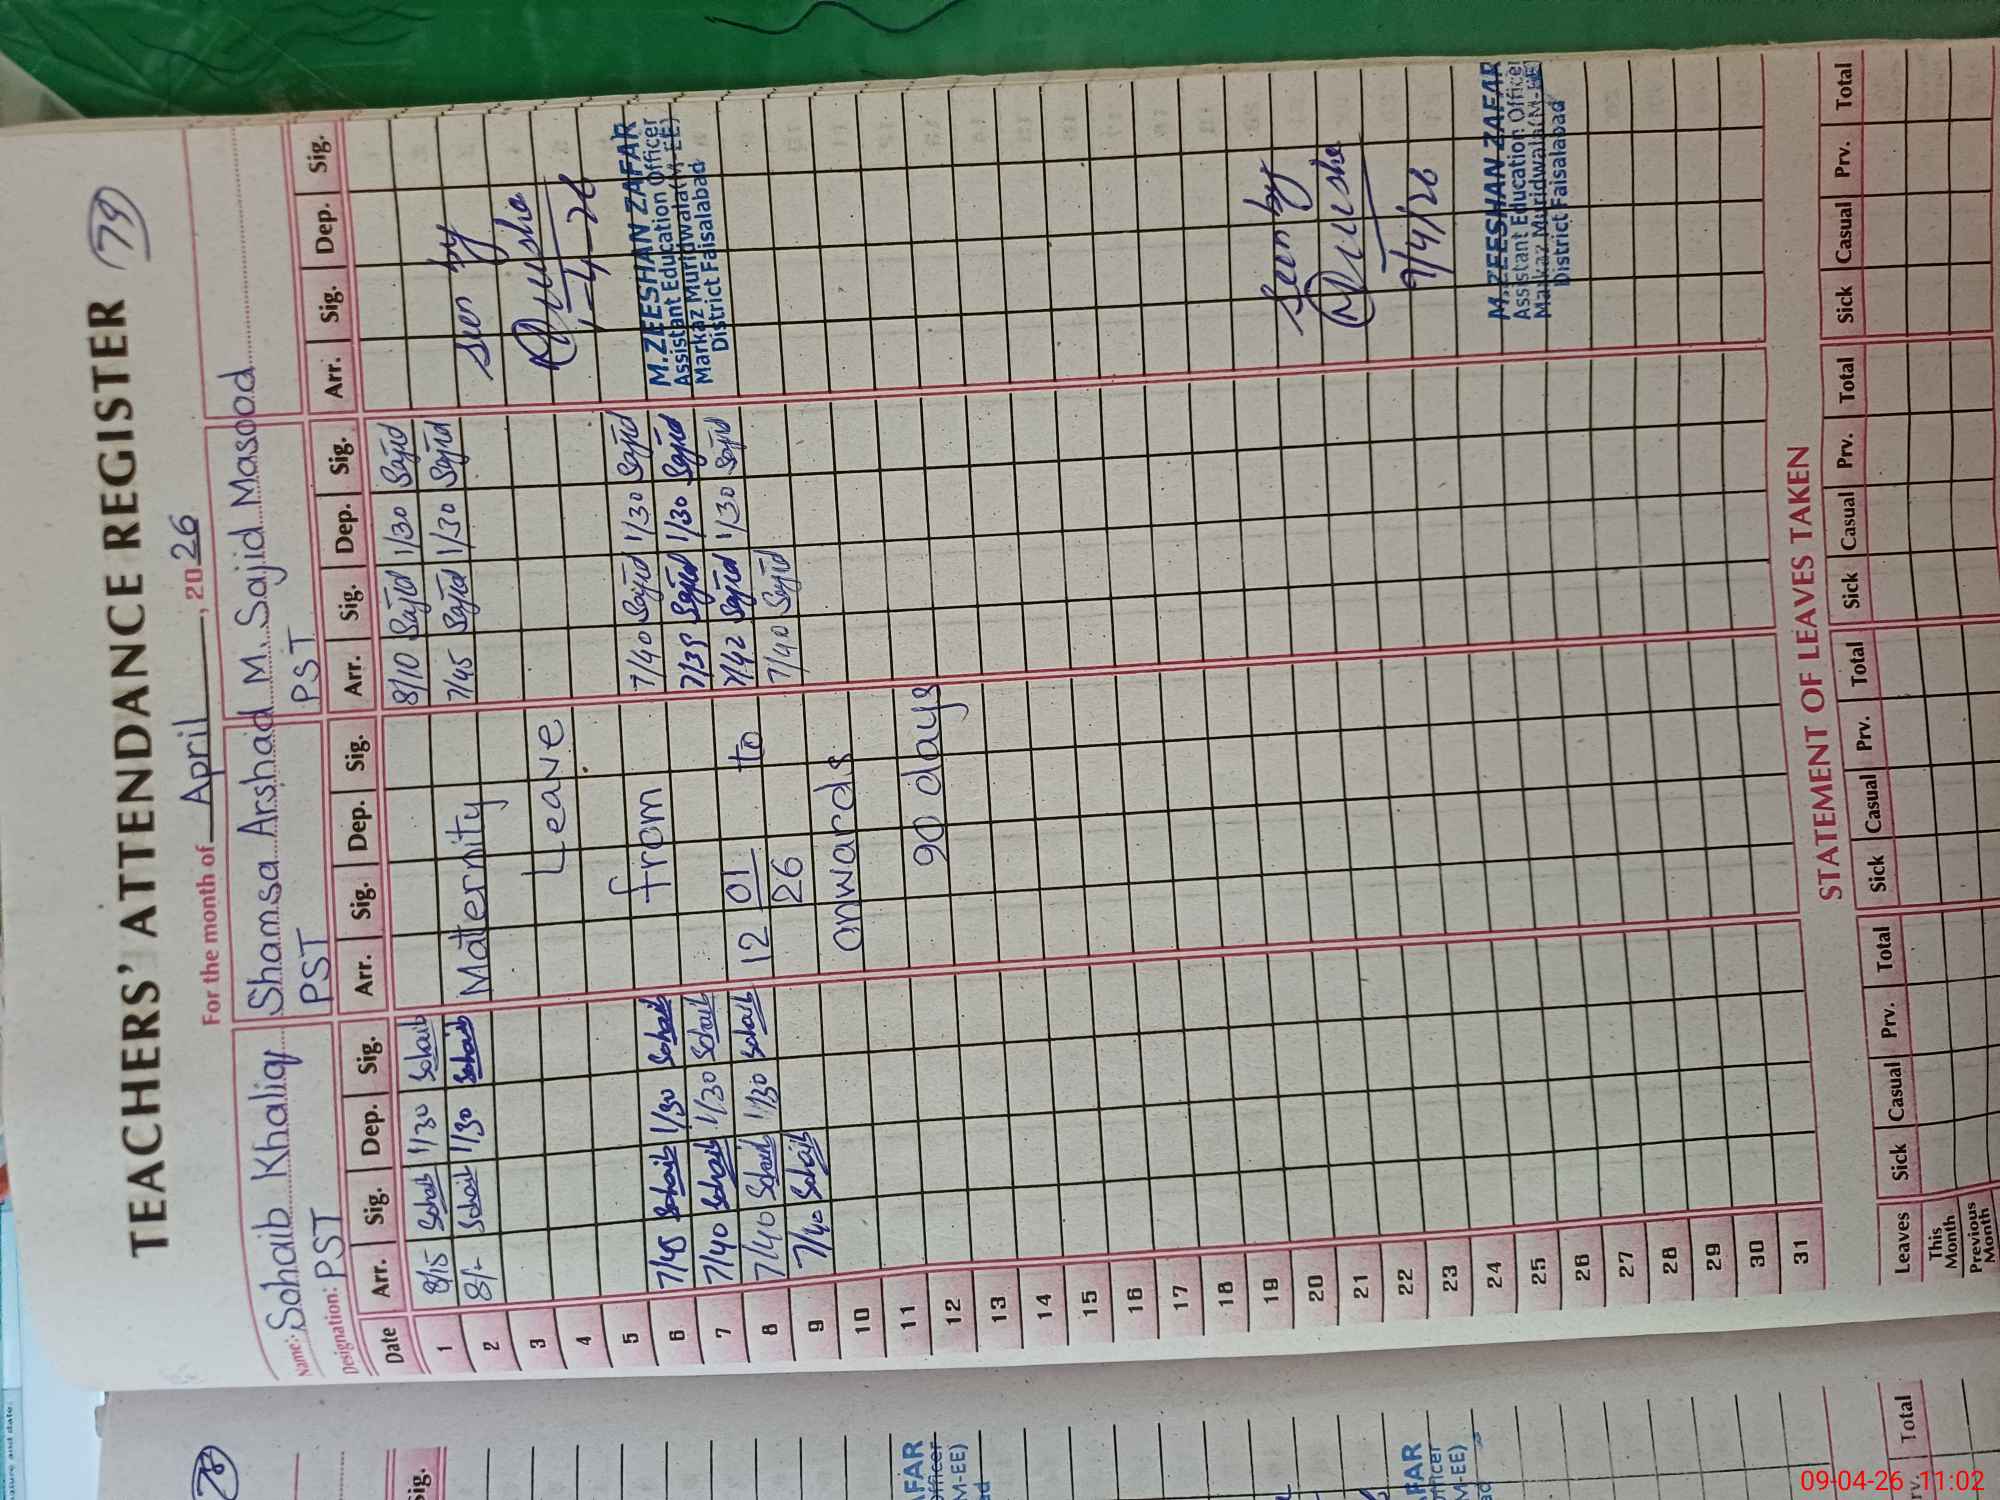 TEACHERS' ATTENDANCE REGISTER 79
For the month of April, 2026
Name: Sohaib Khaliq Shamsa Arshad M. Sajid Masood
Designation: PST PST PST
Date Arr. Sig. Dep. Sig. Arr. Sig. Dep. Sig. Arr. Sig. Dep. Sig. Arr. Sig. Dep. Sig.
1 8/15 Sohaib 1/30 Sohaib 8/10 Sajid 1/30 Sajid
2 8/- Sohaib 1/30 Sohaib Maternity 7/45 Sajid 1/30 Sajid by
3 Leave
4 1-4-26
5
6 7/45 Sohaib 1/30 Sohaib from 7/40 Sajid 1/30 Sajid M.ZEESHAN ZAFAR
Assistant Education Officer
7 7/40 Sohaib 1/30 Sohaib 7/39 Sajid 1/30 Sajid Markaz Muridwala(M-EE)
District Faisalabad
8 7/40 Sohaib 1/30 Sohaib 12 01/26 to 7/42 Sajid 1/30 Sajid
9 7/40 Sohaib 7/40 Sajid
10 onwards
11
12 90 days
13
14
15
16
17
18
19
20 Seen by
21
22
23 9/4/26
24
25 M.ZEESHAN ZAFAR
Assistant Education Officer
Markaz Muridwala(M-EE)
26 District Faisalabad
27
28
29
30
31
STATEMENT OF LEAVES TAKEN
Leaves Sick Casual Prv. Total Sick Casual Prv. Total Sick Casual Prv. Total Sick Casual Prv. Total
This Month
Previous Month
78
Sig.
AFAR
Officer
M-EE)
ad
FAR
fficer
M-EE)
Total
09-04-26 11:02